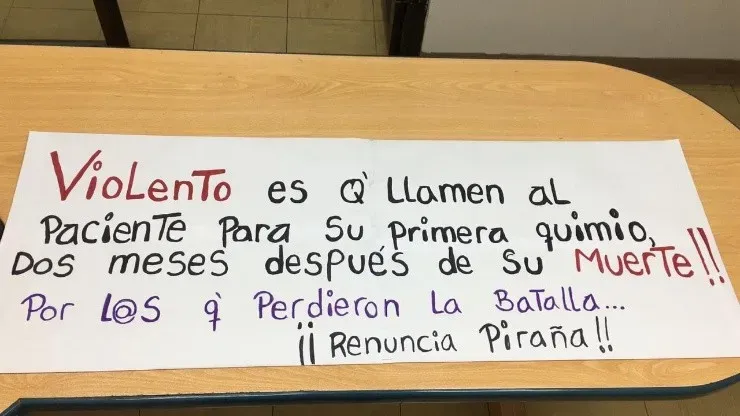 VioLenTo es Q' LLamen aL
Paciente Para Su primera quimio,
Dos meses después de Su MuerTe!!
Por L@s q' Perdieron La BaTalla...
¡¡Renuncia Piraña!!